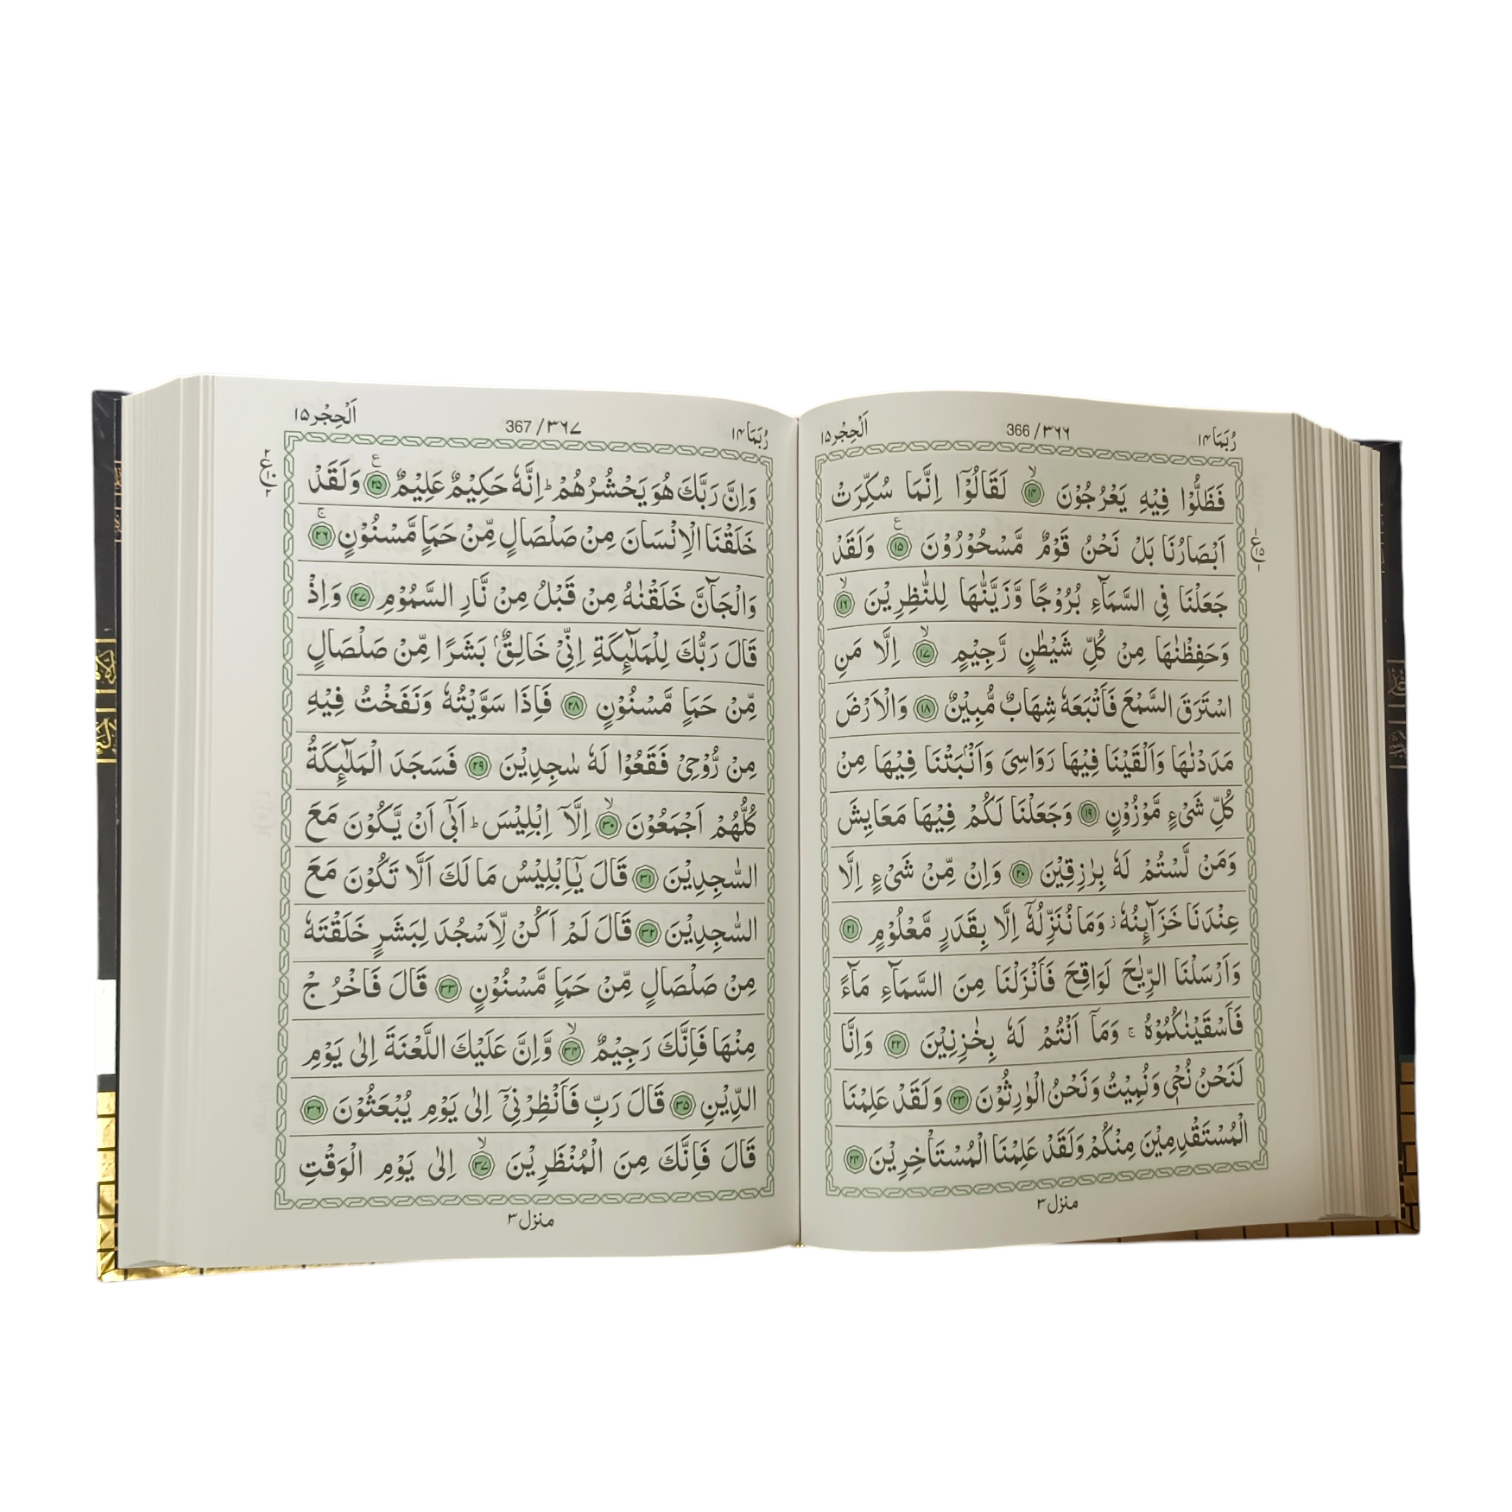 رُبَمَا ١٤
366 / ٣٦٦
اَلْحِجْر ١٥
فَظَلُّوْا فِيْهِ يَعْرُجُوْنَ ۙ‏ ﴿۱۴﴾ لَقَالُوْۤا اِنَّمَا سُكِّرَتْ
اَبْصَارُنَا بَلْ نَحْنُ قَوْمٌ مَّسْحُوْرُوْنَ ﴿۱۵﴾ ع وَلَقَدْ
جَعَلْنَا فِى السَّمَآءِ بُرُوْجًا وَّزَيَّنّٰهَا لِلنّٰظِرِيْنَ ۙ‏ ﴿۱۶﴾
وَحَفِظْنٰهَا مِنْ كُلِّ شَيْطٰنٍ رَّجِيْمٍ ۙ‏ ﴿۱۷﴾ اِلَّا مَنِ
اسْتَرَقَ السَّمْعَ فَاَتْبَعَهٗ شِهَابٌ مُّبِيْنٌ ﴿۱۸﴾ وَالْاَرْضَ
مَدَدْنٰهَا وَاَلْقَيْنَا فِيْهَا رَوَاسِىَ وَاَنْۢبَتْنَا فِيْهَا مِنْ
كُلِّ شَىْءٍ مَّوْزُوْنٍ ﴿۱۹﴾ وَجَعَلْنَا لَكُمْ فِيْهَا مَعَايِشَ
وَمَنْ لَّسْتُمْ لَهٗ بِرٰزِقِيْنَ ﴿۲۰﴾ وَاِنْ مِّنْ شَىْءٍ اِلَّا
عِنْدَنَا خَزَآئِنُهٗ ز وَمَا نُنَزِّلُهٗۤ اِلَّا بِقَدَرٍ مَّعْلُوْمٍ ﴿۲۱﴾
وَاَرْسَلْنَا الرِّيٰحَ لَوَاقِحَ فَاَنْزَلْنَا مِنَ السَّمَآءِ مَآءً
فَاَسْقَيْنٰكُمُوْهُ ۚ وَمَاۤ اَنْتُمْ لَهٗ بِخٰزِنِيْنَ ﴿۲۲﴾ وَاِنَّا
لَنَحْنُ نُحْىٖ وَنُمِيْتُ وَنَحْنُ الْوٰرِثُوْنَ ﴿۲۳﴾ وَلَقَدْ عَلِمْنَا
الْمُسْتَقْدِمِيْنَ مِنْكُمْ وَلَقَدْ عَلِمْنَا الْمُسْتَاْخِرِيْنَ ﴿۲۴﴾
منزل ٣
رُبَمَا ١٤
367 / ٣٦٧
اَلْحِجْر ١٥
وَاِنَّ رَبَّكَ هُوَ يَحْشُرُهُمْ ؕ اِنَّهٗ حَكِيْمٌ عَلِيْمٌ ﴿۲۵﴾ ع وَلَقَدْ
خَلَقْنَا الْاِنْسَانَ مِنْ صَلْصَالٍ مِّنْ حَمَاٍ مَّسْنُوْنٍ ۚ‏ ﴿۲۶﴾
وَالْجَآنَّ خَلَقْنٰهُ مِنْ قَبْلُ مِنْ نَّارِ السَّمُوْمِ ﴿۲۷﴾ وَاِذْ
قَالَ رَبُّكَ لِلْمَلٰٓئِكَةِ اِنِّىْ خَالِقٌۢ بَشَرًا مِّنْ صَلْصَالٍ
مِّنْ حَمَاٍ مَّسْنُوْنٍ ﴿۲۸﴾ فَاِذَا سَوَّيْتُهٗ وَنَفَخْتُ فِيْهِ
مِنْ رُّوْحِىْ فَقَعُوْا لَهٗ سٰجِدِيْنَ ﴿۲۹﴾ فَسَجَدَ الْمَلٰٓئِكَةُ
كُلُّهُمْ اَجْمَعُوْنَ ۙ‏ ﴿۳۰﴾ اِلَّاۤ اِبْلِيْسَ ؕ اَبٰٓى اَنْ يَّكُوْنَ مَعَ
السّٰجِدِيْنَ ﴿۳۱﴾ قَالَ يٰۤاِبْلِيْسُ مَا لَكَ اَلَّا تَكُوْنَ مَعَ
السّٰجِدِيْنَ ﴿۳۲﴾ قَالَ لَمْ اَكُنْ لِّاَسْجُدَ لِبَشَرٍ خَلَقْتَهٗ
مِنْ صَلْصَالٍ مِّنْ حَمَاٍ مَّسْنُوْنٍ ﴿۳۳﴾ قَالَ فَاخْرُجْ
مِنْهَا فَاِنَّكَ رَجِيْمٌ ۙ‏ ﴿۳۴﴾ وَّاِنَّ عَلَيْكَ اللَّعْنَةَ اِلٰى يَوْمِ
الدِّيْنِ ﴿۳۵﴾ قَالَ رَبِّ فَاَنْظِرْنِىْۤ اِلٰى يَوْمِ يُبْعَثُوْنَ ﴿۳۶﴾
قَالَ فَاِنَّكَ مِنَ الْمُنْظَرِيْنَ ۙ‏ ﴿۳۷﴾ اِلٰى يَوْمِ الْوَقْتِ
منزل ٣